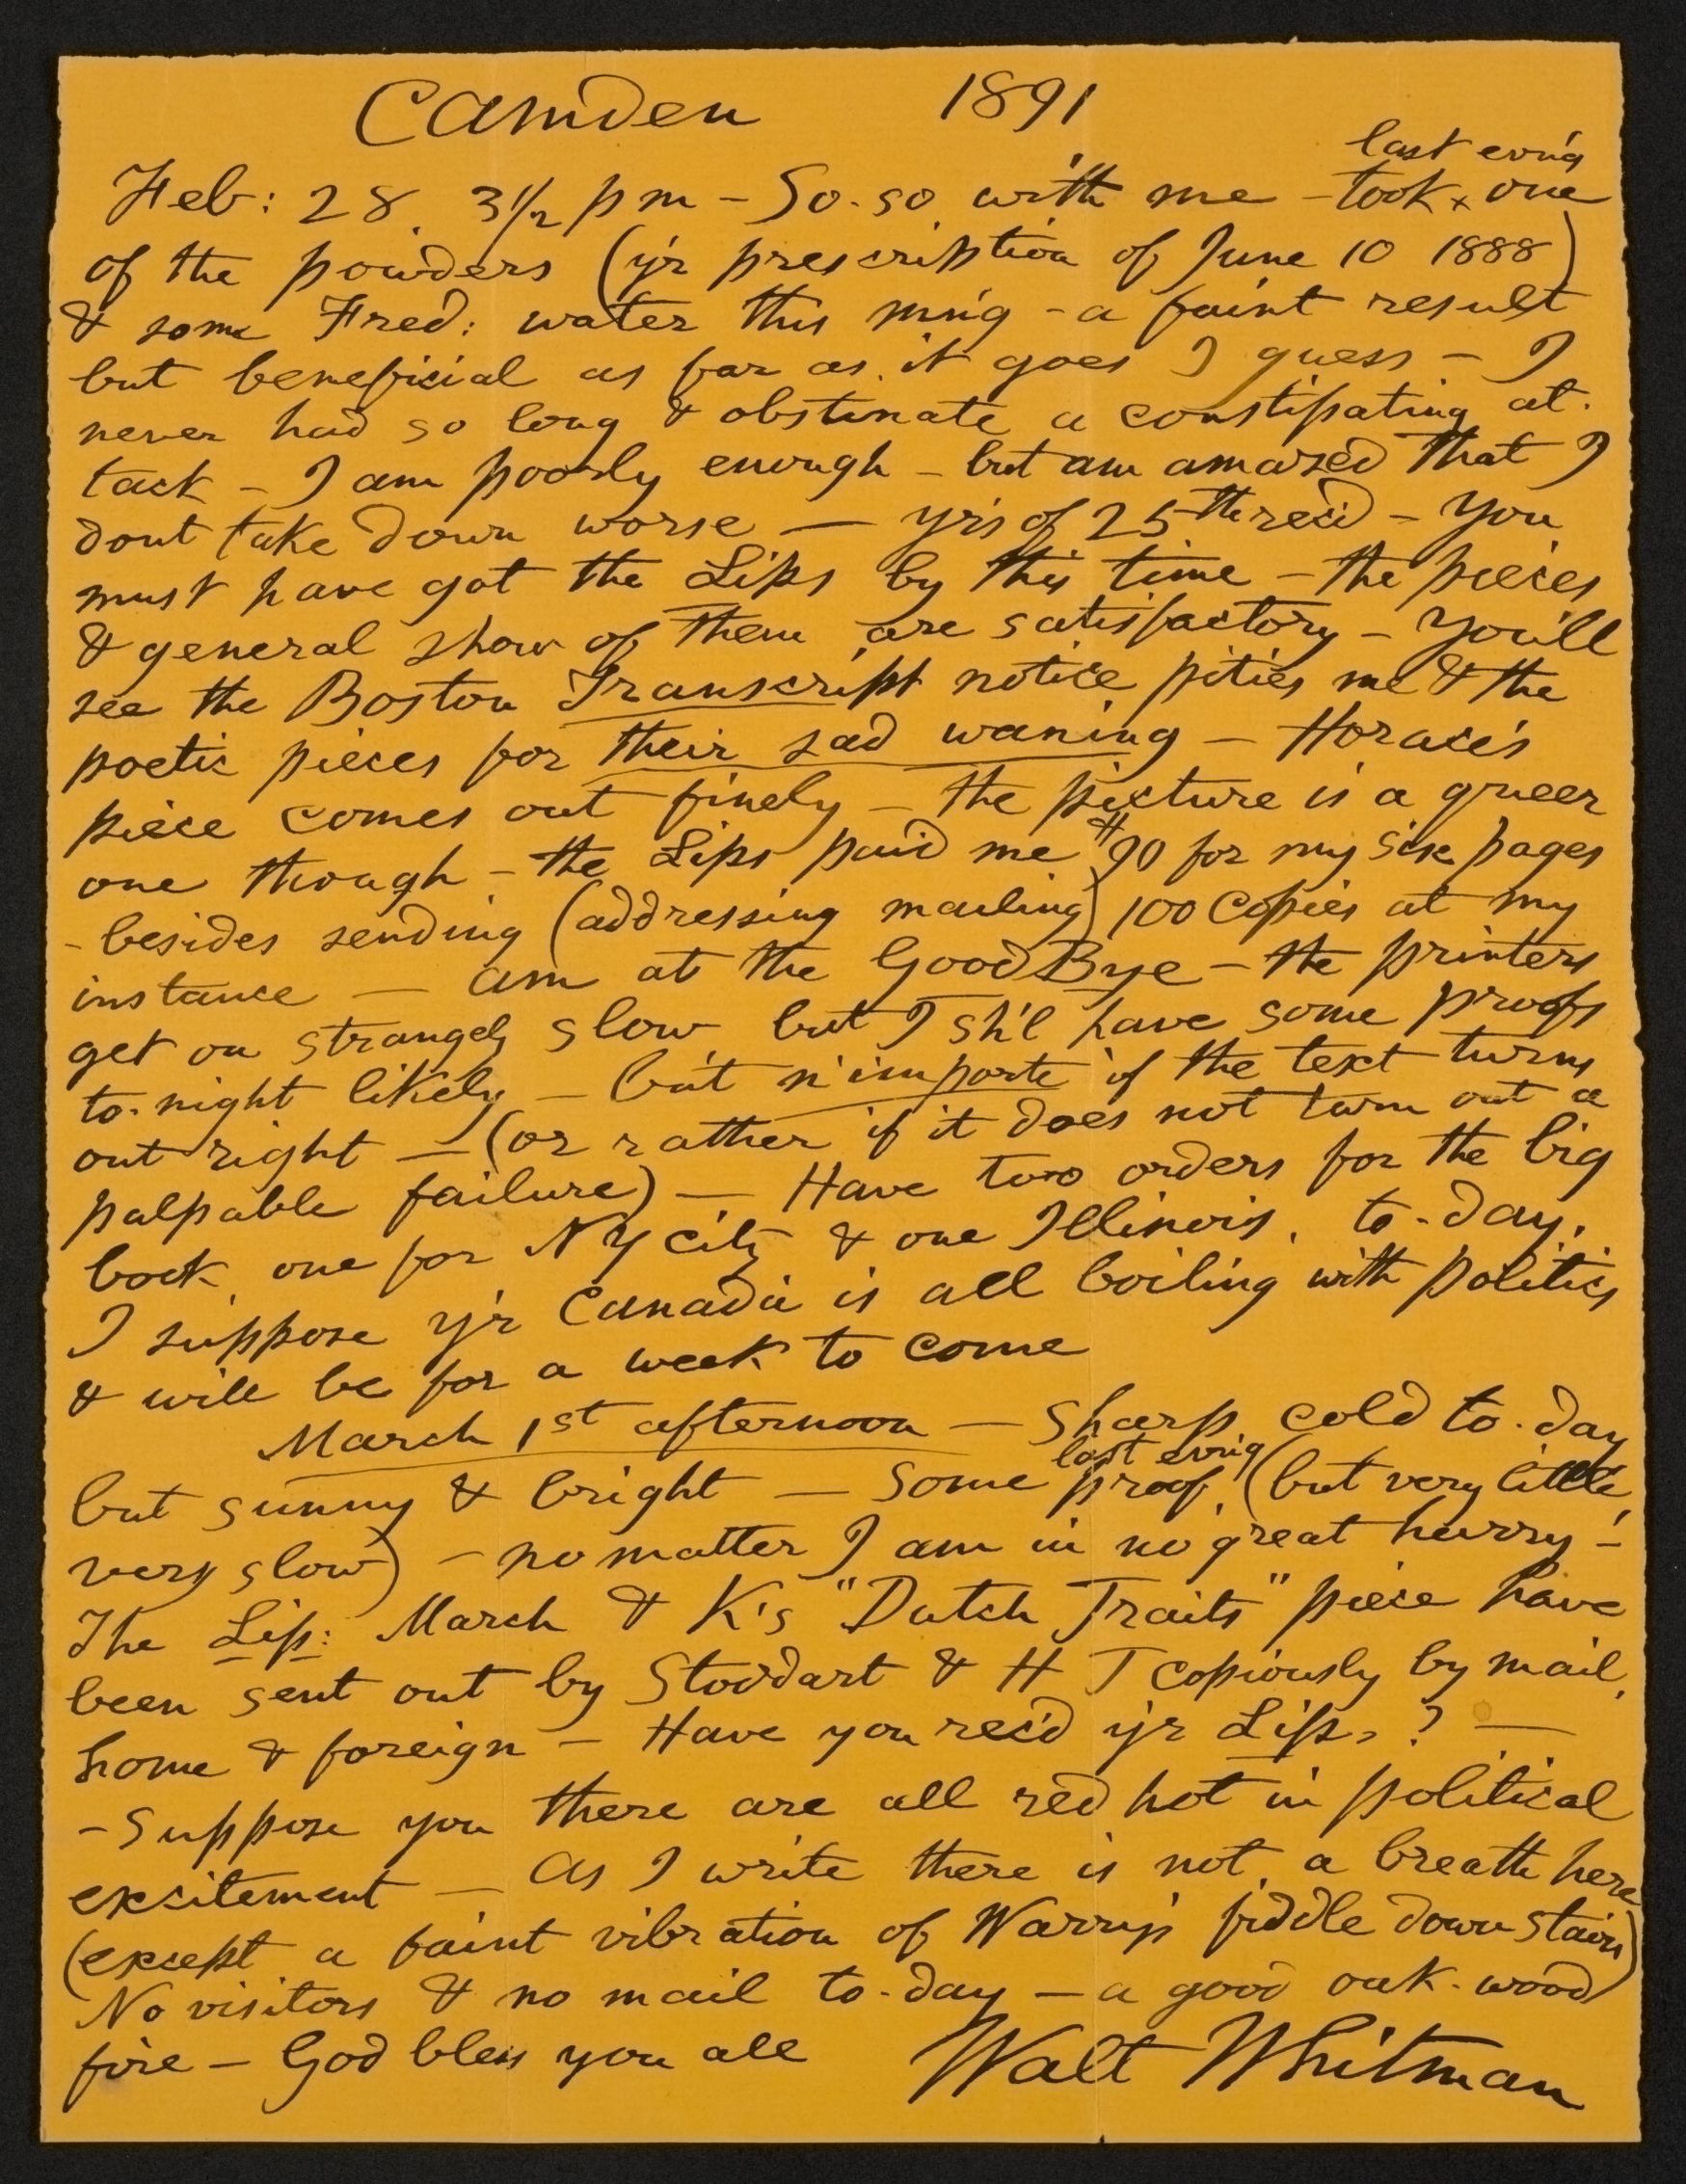 Camden 1891
last ev'n'g
Feb: 28. 3½ p m - So-so with me - took x one
of the powders (y'r prescription of June 10 1888)
& some Fred: water this mn'g - a faint result
but beneficial as far as it goes I guess - I
never had so long & obstinate a constipating at-
tack - I am poorly enough - but am amazed that I
dont take down worse — yr's of 25th rec'd - You
must have got the Lips by this time - the pieces
& general show of them are satisfactory - You'll
see the Boston Transcript notice pities me & the
poetic pieces for their sad waning - Horace's
piece comes out finely - the picture is a queer
one though - the Lips paid me $90 for my six pages
- besides sending (addressing mailing) 100 copies at my
instance — am at the Good Bye - the printers
get on strangely slow but I sh'l have some proofs
to-night likely — but n'importe if the text turns
out right — (or rather if it does not turn out a
palpable failure) — Have two orders for the big
book, one for N Y city & one Illinois, to-day.
I suppose y'r Canada is all boiling with politics
& will be for a week to come
March 1st afternoon — Sharp cold to-day
last ev'n'g
but sunny & bright — Some proof, (but very little,
very slow) - no matter I am in no great hurry -
The Lip: March & K's "Dutch Traits" piece have
been sent out by Stoddart & H T copiously by mail,
home & foreign - Have you rec'd y'r Lip. ? —
- Suppose you there are all red hot in political
excitement — As I write there is not a breath here
(except a faint vibration of Warry's fiddle down stairs)
No visitors & no mail to-day - a good oak-wood
fire - God bless you all Walt Whitman